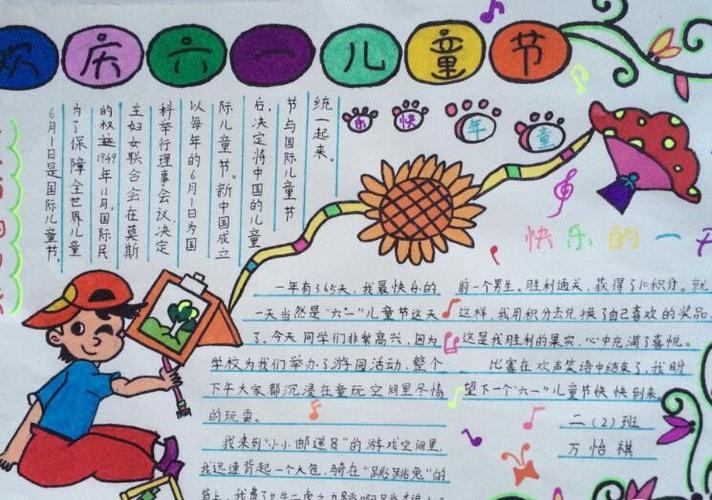 欢庆六一儿童节
6月1日是国际儿童节,
为了保障全世界儿童
的权益1949年11月,国际民
主妇女联合会在莫斯
科举行理事会议,决定
以每年的6月1日为国
际儿童节。新中国成立
后,决定将中国的儿童
节与国际儿童节
统一起来。
乐快年童
快乐的一天
一年有365天,我最快乐的
一天当然是“六一”儿童节这天
了。今天同学们非常高兴,因为
学校为我们举办了游园活动,整个
下午大家都沉浸在童玩空间里尽情
的玩耍。
我来到“小小邮递员”的游戏空间里,
我迅速背起一个大包,骑在“跳跳兔”的
背上,我费了九牛二虎之力跳啊跳
前一个男生。胜利通关,获得了10积分。就
这样,我用积分去兑换了自己喜欢的奖品,
这是我胜利的果实,心中充满了喜悦。
比赛在欢声笑语中结束了,我盼
望下一个“六一”儿童节快快到来。
二(2)班
万怡祺